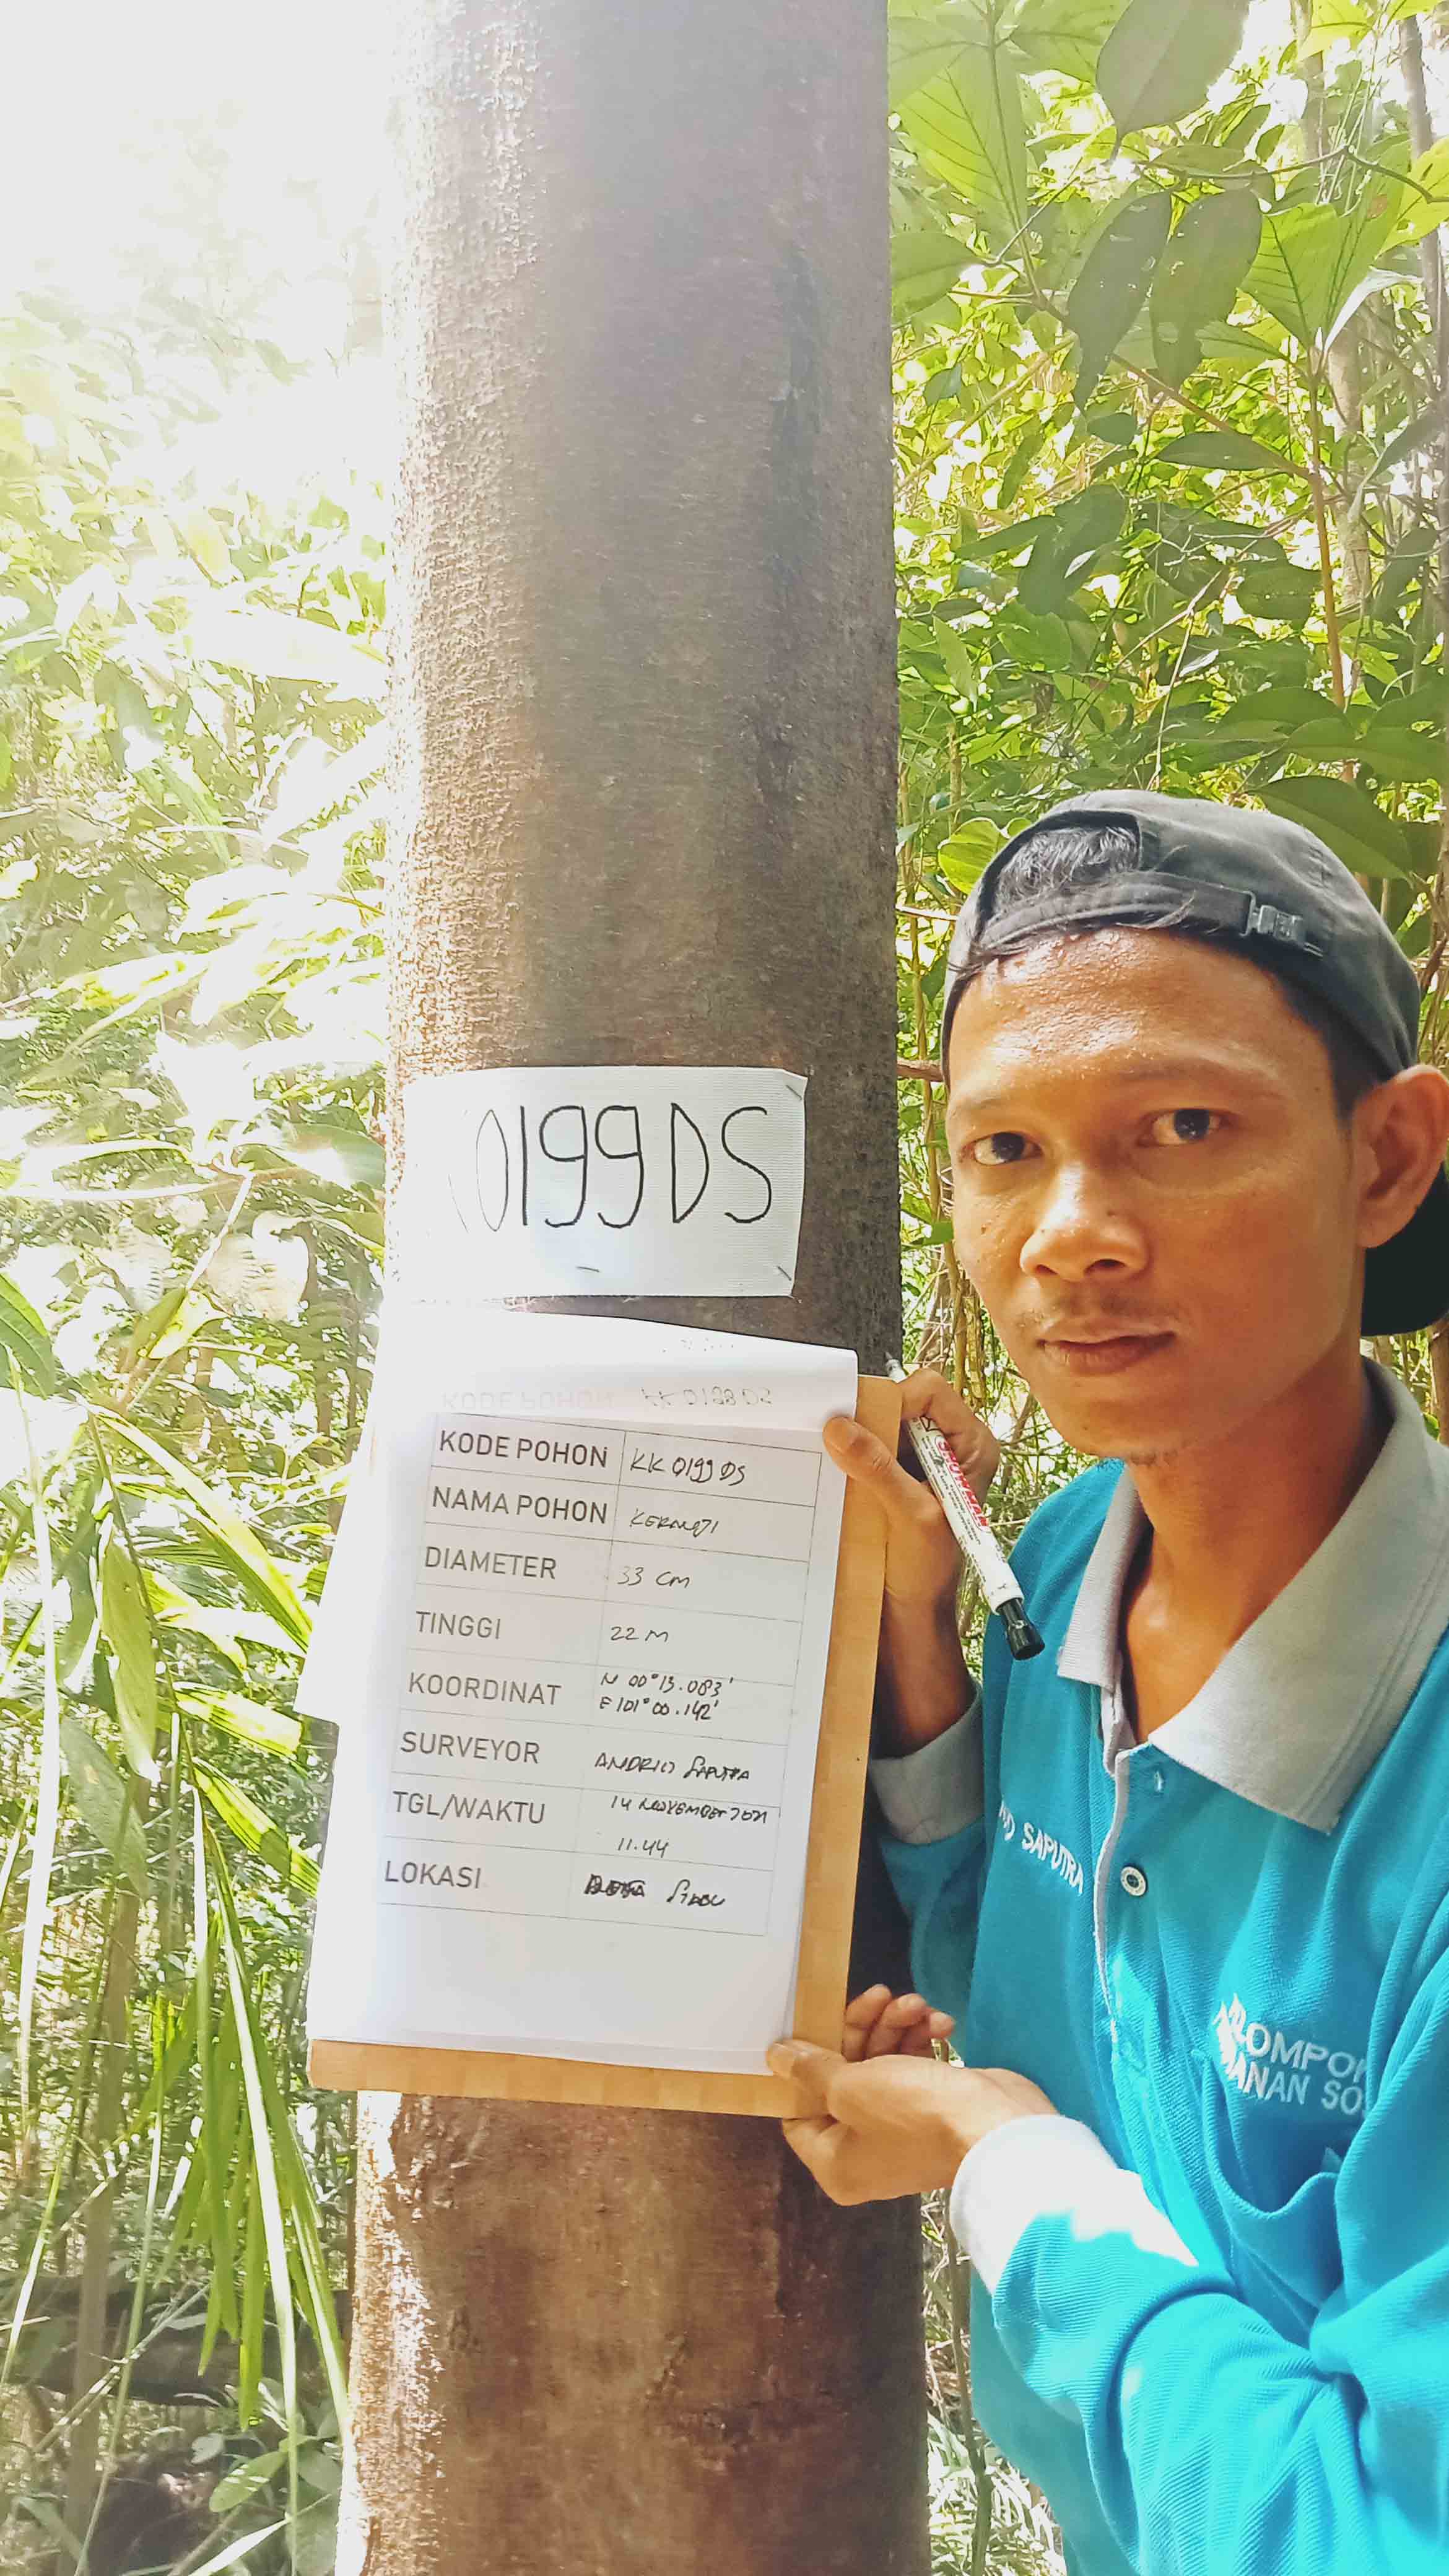 0199DS
KODE POHON KK 0199 DS
NAMA POHON KERANJI
DIAMETER 33 CM
TINGGI 22 M
KOORDINAT N 00° 13.083'
E 101° 00.142'
SURVEYOR ANDRIO SAPUTRA
TGL/WAKTU 14 NOVEMBER 2021
11.44
LOKASI
SNOWMAN
SAPUTRA
LOMPO
ANAN SO